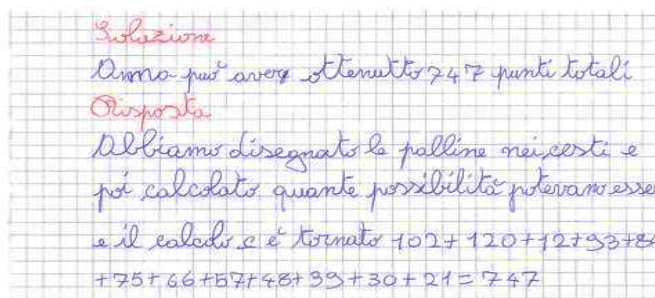 Soluzione
Anna può aver ottenutto 747 punti totali
Risposta
Abbiamo disegnato le palline nei cesti e
poi calcolato quante possibilità potevano esser
e il calcolo c'è tornato 102+120+12+93+84
+75+66+57+48+39+30+21=747